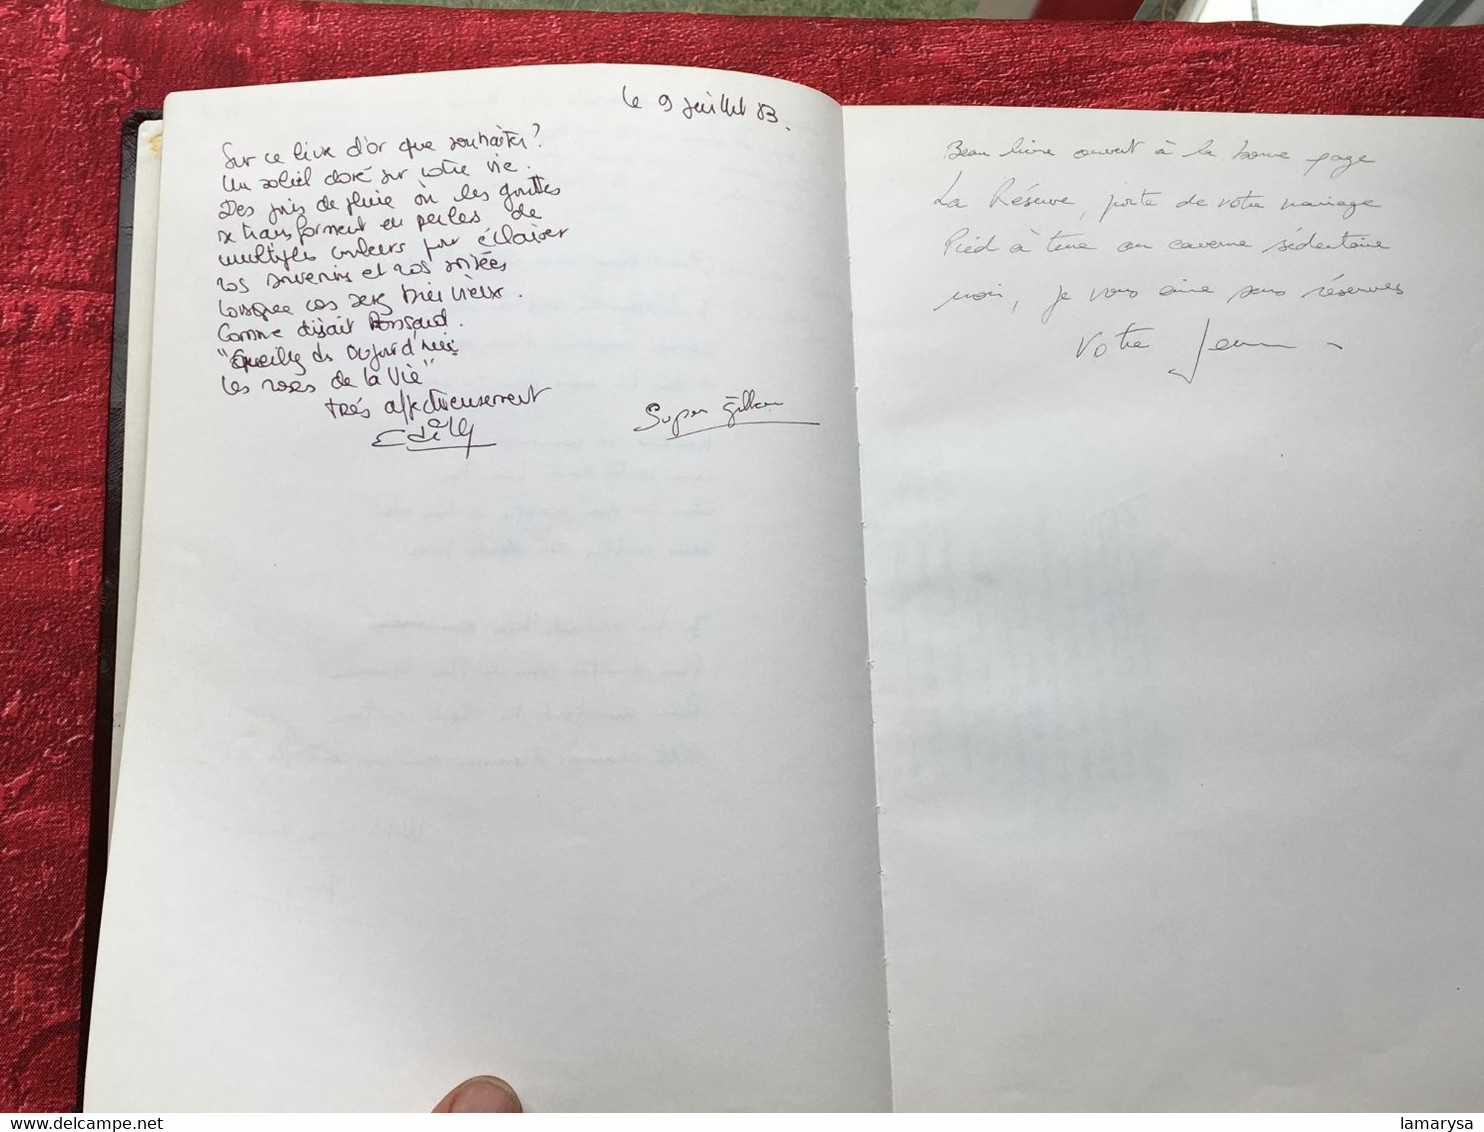 le 9 juillet 83.
Sur ce livre d'or que souhaiter?
Un soleil doré sur votre vie.
Des jours de pluie où les gouttes
se transforment en perles de
multiples couleurs pour éclairer
vos souvenirs et vos soirées
lorsque vous serez très vieux.
Comme disait Ronsard.
"Cueillez dès aujourd'hui
les roses de la Vie"
très affectueusement
Super
Beau livre ouvert à la bonne page
La Réserve, porte de votre mariage
Pied à terre ou caverne sédentaire
moi, je vous aime sans réserves
Votre Jean
lamarysa